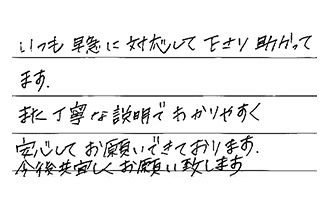 いつも早急に対応して下さり助かって
ます.
また丁寧な説明でわかりやすく
安心してお願いできております.
今後共宜しくお願い致します